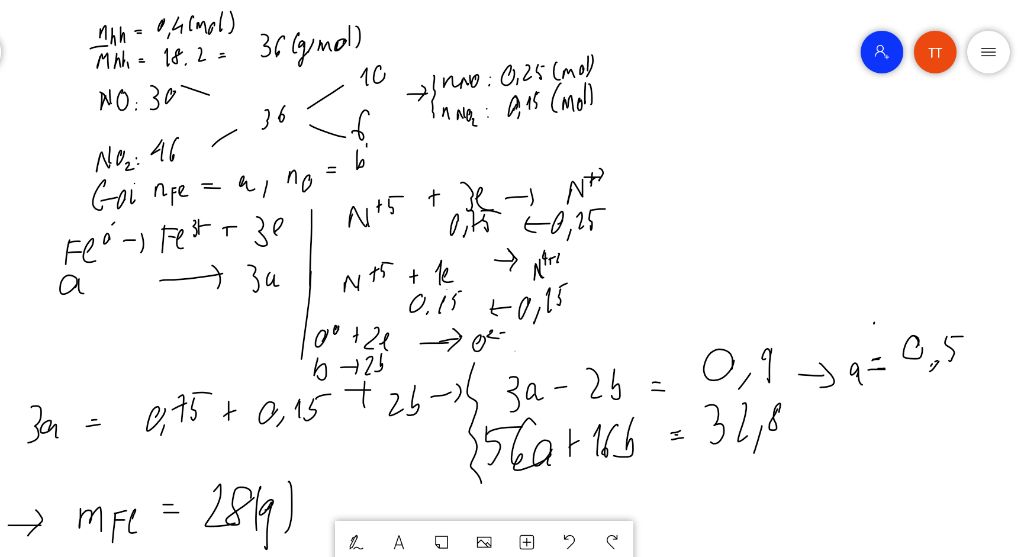 nhh = 0,4 (mol)
Mhh = 18.2 = 36 (g/mol)
NO: 30
36
10
6
NO₂: 46
→ { nNO: 0,25 (mol)
nNO₂: 0,15 (mol)
Gọi nFe = a, nO = b
Fe⁰ → Fe³⁺ + 3e
a → 3a
N⁺⁵ + 3e → N⁺²
0,75 ← 0,25
N⁺⁵ + 1e → N⁺⁴
0,15 ← 0,15
O⁰ + 2e → O²⁻
b → 2b
3a = 0,75 + 0,15 + 2b → { 3a - 2b = 0,9 → a = 0,5
56a + 16b = 32,8
→ mFe = 28 (g)
TT
A